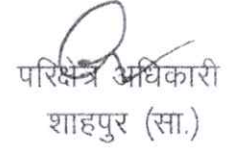 परिक्षेत्र अधिकारी
शाहपुर (सा.)